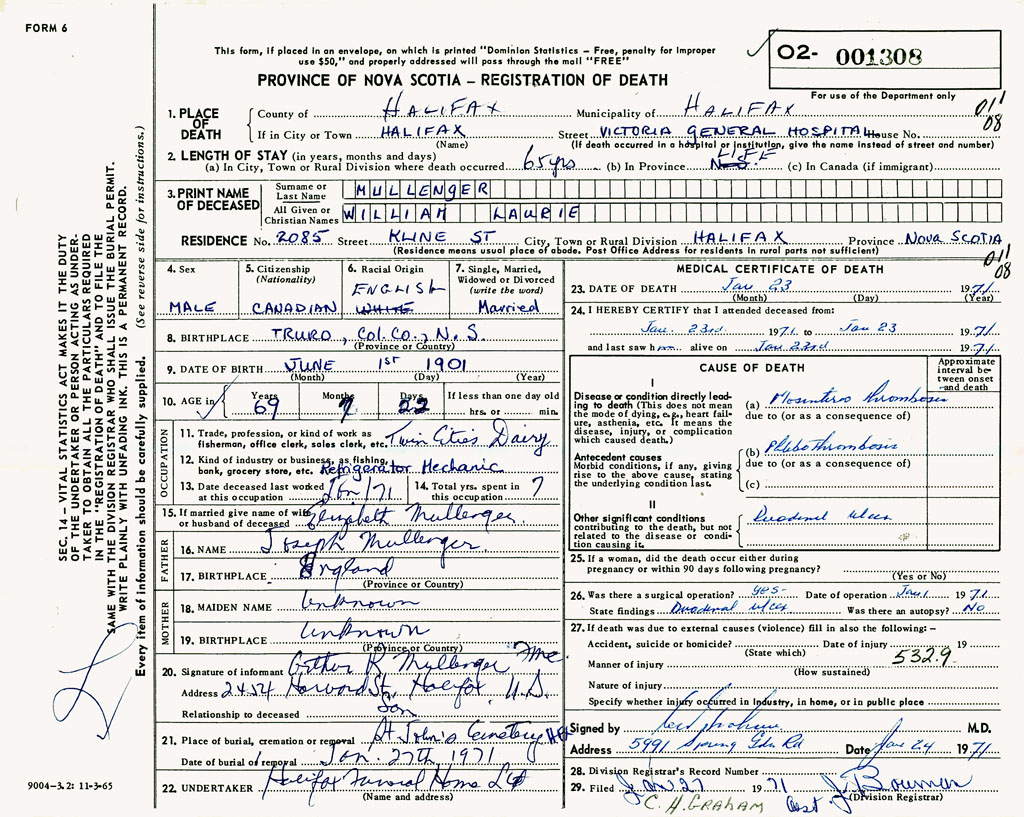 FORM 6
This form, if placed in an envelope, on which is printed "Dominion Statistics – Free, penalty for improper
use $50," and properly addressed will pass through the mail "FREE"
PROVINCE OF NOVA SCOTIA – REGISTRATION OF DEATH
02- 001308
For use of the Department only
011
08
1. PLACE OF DEATH
County of HALIFAX Municipality of HALIFAX
If in City or Town HALIFAX Street VICTORIA GENERAL HOSPITAL House No.
(Name) (If death occurred in a hospital or institution, give the name instead of street and number)
2. LENGTH OF STAY (in years, months and days)
(a) In City, Town or Rural Division where death occurred 65 yrs (b) In Province N.S. LIFE (c) In Canada (if immigrant)
3. PRINT NAME OF DECEASED
Surname or Last Name MULLENGER
All Given or Christian Names WILLIAM LAURIE
RESIDENCE No. 2085 Street KLINE ST City, Town or Rural Division HALIFAX Province NOVA SCOTIA
(Residence means usual place of abode. Post Office Address for residents in rural parts not sufficient)
011
08
4. Sex MALE
5. Citizenship (Nationality) CANADIAN
6. Racial Origin ENGLISH WHITE
7. Single, Married, Widowed or Divorced (write the word) Married
8. BIRTHPLACE TRURO, COL. CO., N.S.
(Province or Country)
9. DATE OF BIRTH JUNE 1st 1901
(Month) (Day) (Year)
10. AGE in Years 69 Months 7 Days 22 If less than one day old
hrs. or min.
OCCUPATION
11. Trade, profession, or kind of work as fisherman, office clerk, sales clerk, etc. Twin Cities Dairy
12. Kind of industry or business, as fishing, bank, grocery store, etc. Refrigerator Mechanic
13. Date deceased last worked at this occupation Jan/71
14. Total yrs. spent in this occupation 7
15. If married give name of wife or husband of deceased Elizabeth Mullenger
FATHER
16. NAME Joseph Mullenger
17. BIRTHPLACE England
(Province or Country)
MOTHER
18. MAIDEN NAME Unknown
19. BIRTHPLACE Unknown
(Province or Country)
20. Signature of informant R Mullenger
Address 2454 Harvard St. Halifax N.S.
Relationship to deceased Son
21. Place of burial, cremation or removal St John's Cemetery
Date of burial or removal Jan. 27th 1971
22. UNDERTAKER Halifax Funeral Home Ltd
(Name and address)
MEDICAL CERTIFICATE OF DEATH
23. DATE OF DEATH Jan 23 1971
(Month) (Day) (Year)
24. I HEREBY CERTIFY that I attended deceased from:
Jan. 23rd 1971 to Jan 23 1971
and last saw him alive on Jan 23rd 1971
CAUSE OF DEATH
Approximate interval between onset and death
I
Disease or condition directly leading to death (This does not mean the mode of dying, e.g., heart failure, asthenia, etc. It means the disease, injury, or complication which caused death.)
(a) thrombosis
due to (or as a consequence of)
Antecedent causes
Morbid conditions, if any, giving rise to the above cause, stating the underlying condition last.
(b) Phlebothrombosis
due to (or as a consequence of)
(c)
II
Other significant conditions contributing to the death, but not related to the disease or condition causing it.
Duodenal ulcer
25. If a woman, did the death occur either during
pregnancy or within 90 days following pregnancy?
(Yes or No)
26. Was there a surgical operation? yes- Date of operation Jan 1 1971
State findings Duodenal ulcer Was there an autopsy? No
27. If death was due to external causes (violence) fill in also the following: –
Accident, suicide or homicide? Date of injury 19
(State which)
532.9
Manner of injury
(How sustained)
Nature of injury
Specify whether injury occurred in industry, in home, or in public place
Signed by M.D.
Address 5991 Spring Gdn Rd Date Jan 24 1971
28. Division Registrar's Record Number
29. Filed Jan 27 1971 J. Bowman
(Division Registrar)
C. H. GRAHAM
SEC. 14 – VITAL STATISTICS ACT MAKES IT THE DUTY
OF THE UNDERTAKER OR PERSON ACTING AS UNDERTAKER TO OBTAIN ALL THE PARTICULARS REQUIRED
IN THE "REGISTRATION OF DEATH" AND TO FILE THE
SAME WITH THE DIVISION REGISTRAR WHO SHALL ISSUE THE BURIAL PERMIT.
WRITE PLAINLY WITH UNFADING INK. THIS IS A PERMANENT RECORD.
Every item of information should be carefully supplied. (See reverse side for instructions.)
9004-3.2: 11-3-65